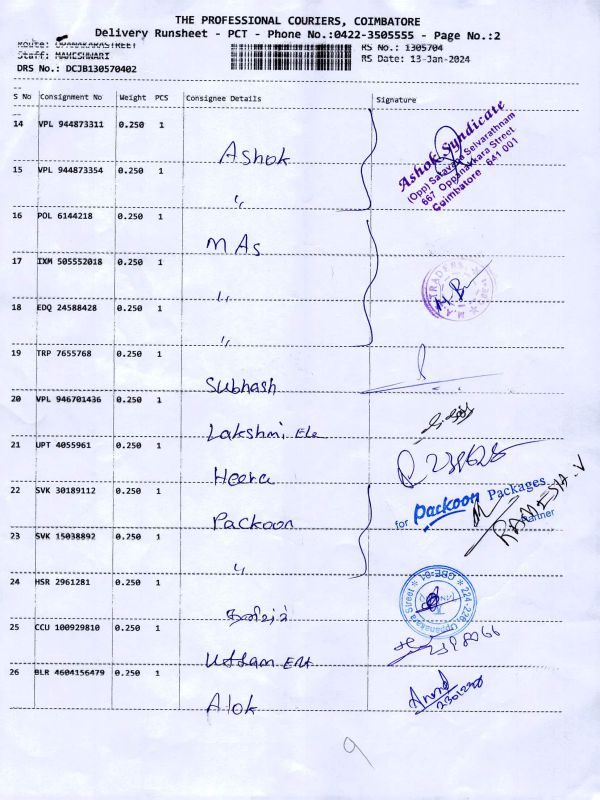 THE PROFESSIONAL COURIERS, COIMBATORE
Delivery Runsheet - PCT - Phone No.:0422-3505555 - Page No.:2
Route: OPANAKARASTREET
Staff: MAHESHWARI
RS No.: 1305704
DRS No.: DCJB130570402
RS Date: 13-Jan-2024
S No Consignment No Weight PCS Consignee Details Signature
14 VPL 944873311 0.250 1
Ashok
Ashok Syndicate
(Opp) Saravana Selvarathnam
667 Oppanakkara Street
Coimbatore - 641 001
15 VPL 944873354 0.250 1
"
16 POL 6144218 0.250 1
MAs
17 IXM 505552018 0.250 1
"
M.A. TRADERS
18 EDQ 24588428 0.250 1
"
19 TRP 7655768 0.250 1
Subhash
20 VPL 946701436 0.250 1
Lakshmi Ele
21 UPT 4055961 0.250 1
Heera
22 SVK 30189112 0.250 1
Packoon
for Packoon Packages
Partner
RAMESH.V
23 SVK 15038892 0.250 1
"
24 HSR 2961281 0.250 1
224-226, Oppanakara Street * CBE-01 *
25 CCU 100929810 0.250 1
Uttam ENT
26 BLR 4604156479 0.250 1
Alok
Anand
9